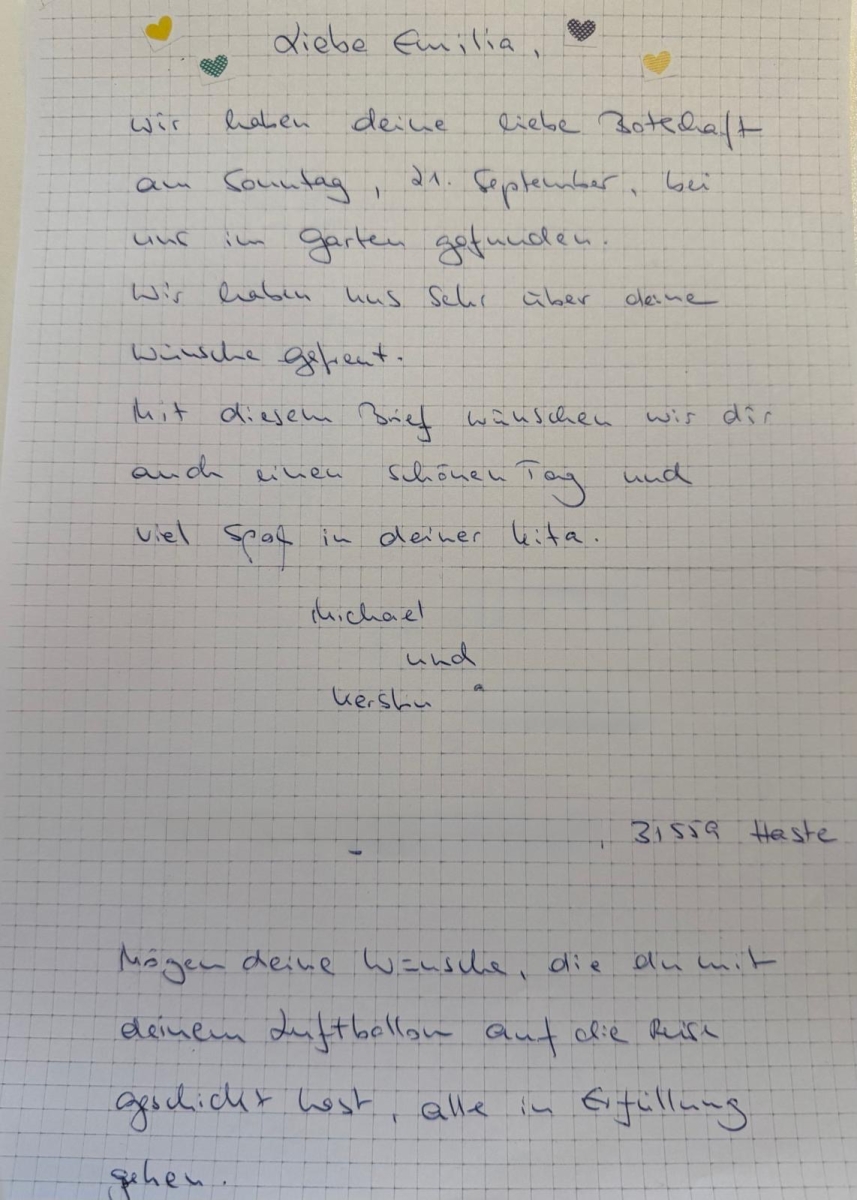 Liebe Emilia,
wir haben deine liebe Botschaft
am Sonntag, 21. September, bei
uns im Garten gefunden.
Wir haben uns sehr über deine
Wünsche gefreut.
Mit diesem Brief wünschen wir dir
auch einen schönen Tag und
viel Spaß in deiner Kita.
Michael
und
Kerstin
, 31559 Haste
Mögen deine Wünsche, die du mit
deinem Luftballon auf die Reise
geschickt hast, alle in Erfüllung
gehen.